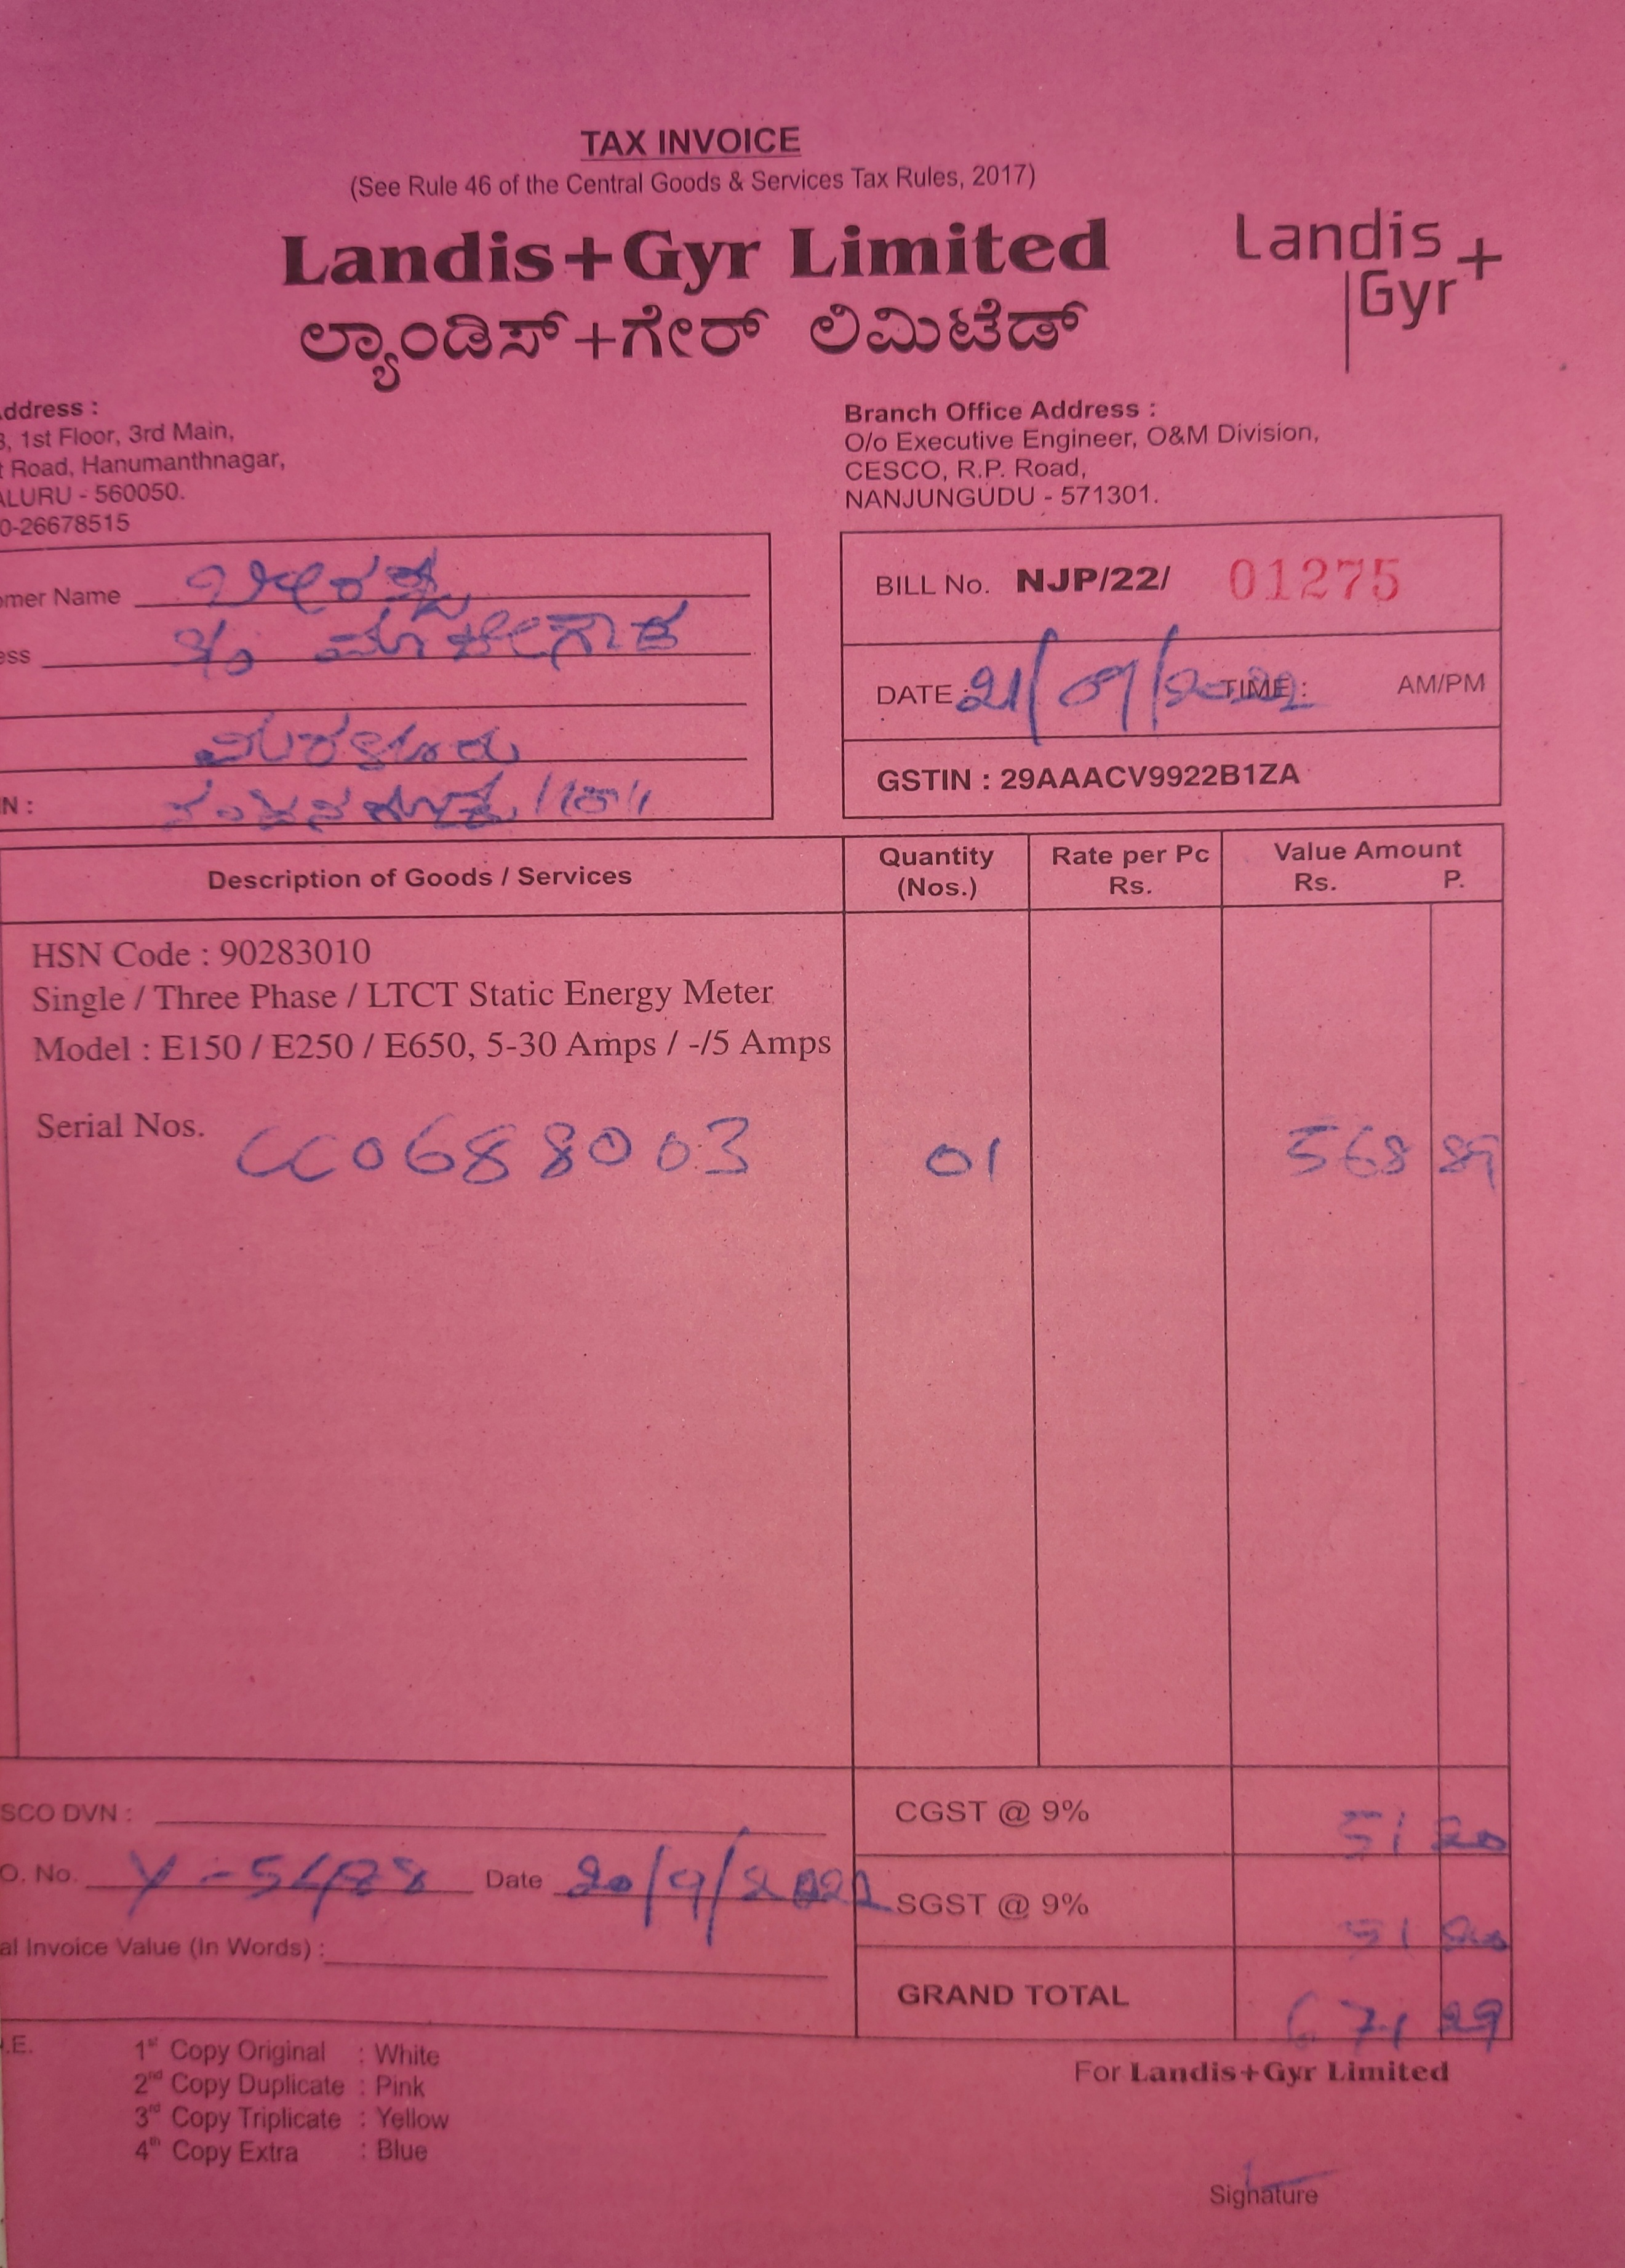 TAX INVOICE
(See Rule 46 of the Central Goods & Services Tax Rules, 2017)
Landis+Gyr Limited
Landis+
Gyr
ಲ್ಯಾಂಡಿಸ್+ಗೇರ್ ಲಿಮಿಟೆಡ್
ddress :
, 1st Floor, 3rd Main,
t Road, Hanumanthnagar,
ALURU - 560050.
0-26678515
Branch Office Address :
O/o Executive Engineer, O&M Division,
CESCO, R.P. Road,
NANJUNGUDU - 571301.
omer Name
ess
N :
BILL No. NJP/22/ 01275
DATE : 21/09/2022 TIME : AM/PM
GSTIN : 29AAACV9922B1ZA
Description of Goods / Services Quantity (Nos.) Rate per Pc Rs. Value Amount Rs. P.
HSN Code : 90283010
Single / Three Phase / LTCT Static Energy Meter
Model : E150 / E250 / E650, 5-30 Amps / -/5 Amps
Serial Nos. CC0688003 01 568 89
SCO DVN :
CGST @ 9% 51 20
O. No. Y-5488 Date 20/9/2022
SGST @ 9% 51 20
al Invoice Value (In Words) :
GRAND TOTAL 671 29
.E.
1st Copy Original : White
2nd Copy Duplicate : Pink
3rd Copy Triplicate : Yellow
4th Copy Extra : Blue
For Landis+Gyr Limited
Signature